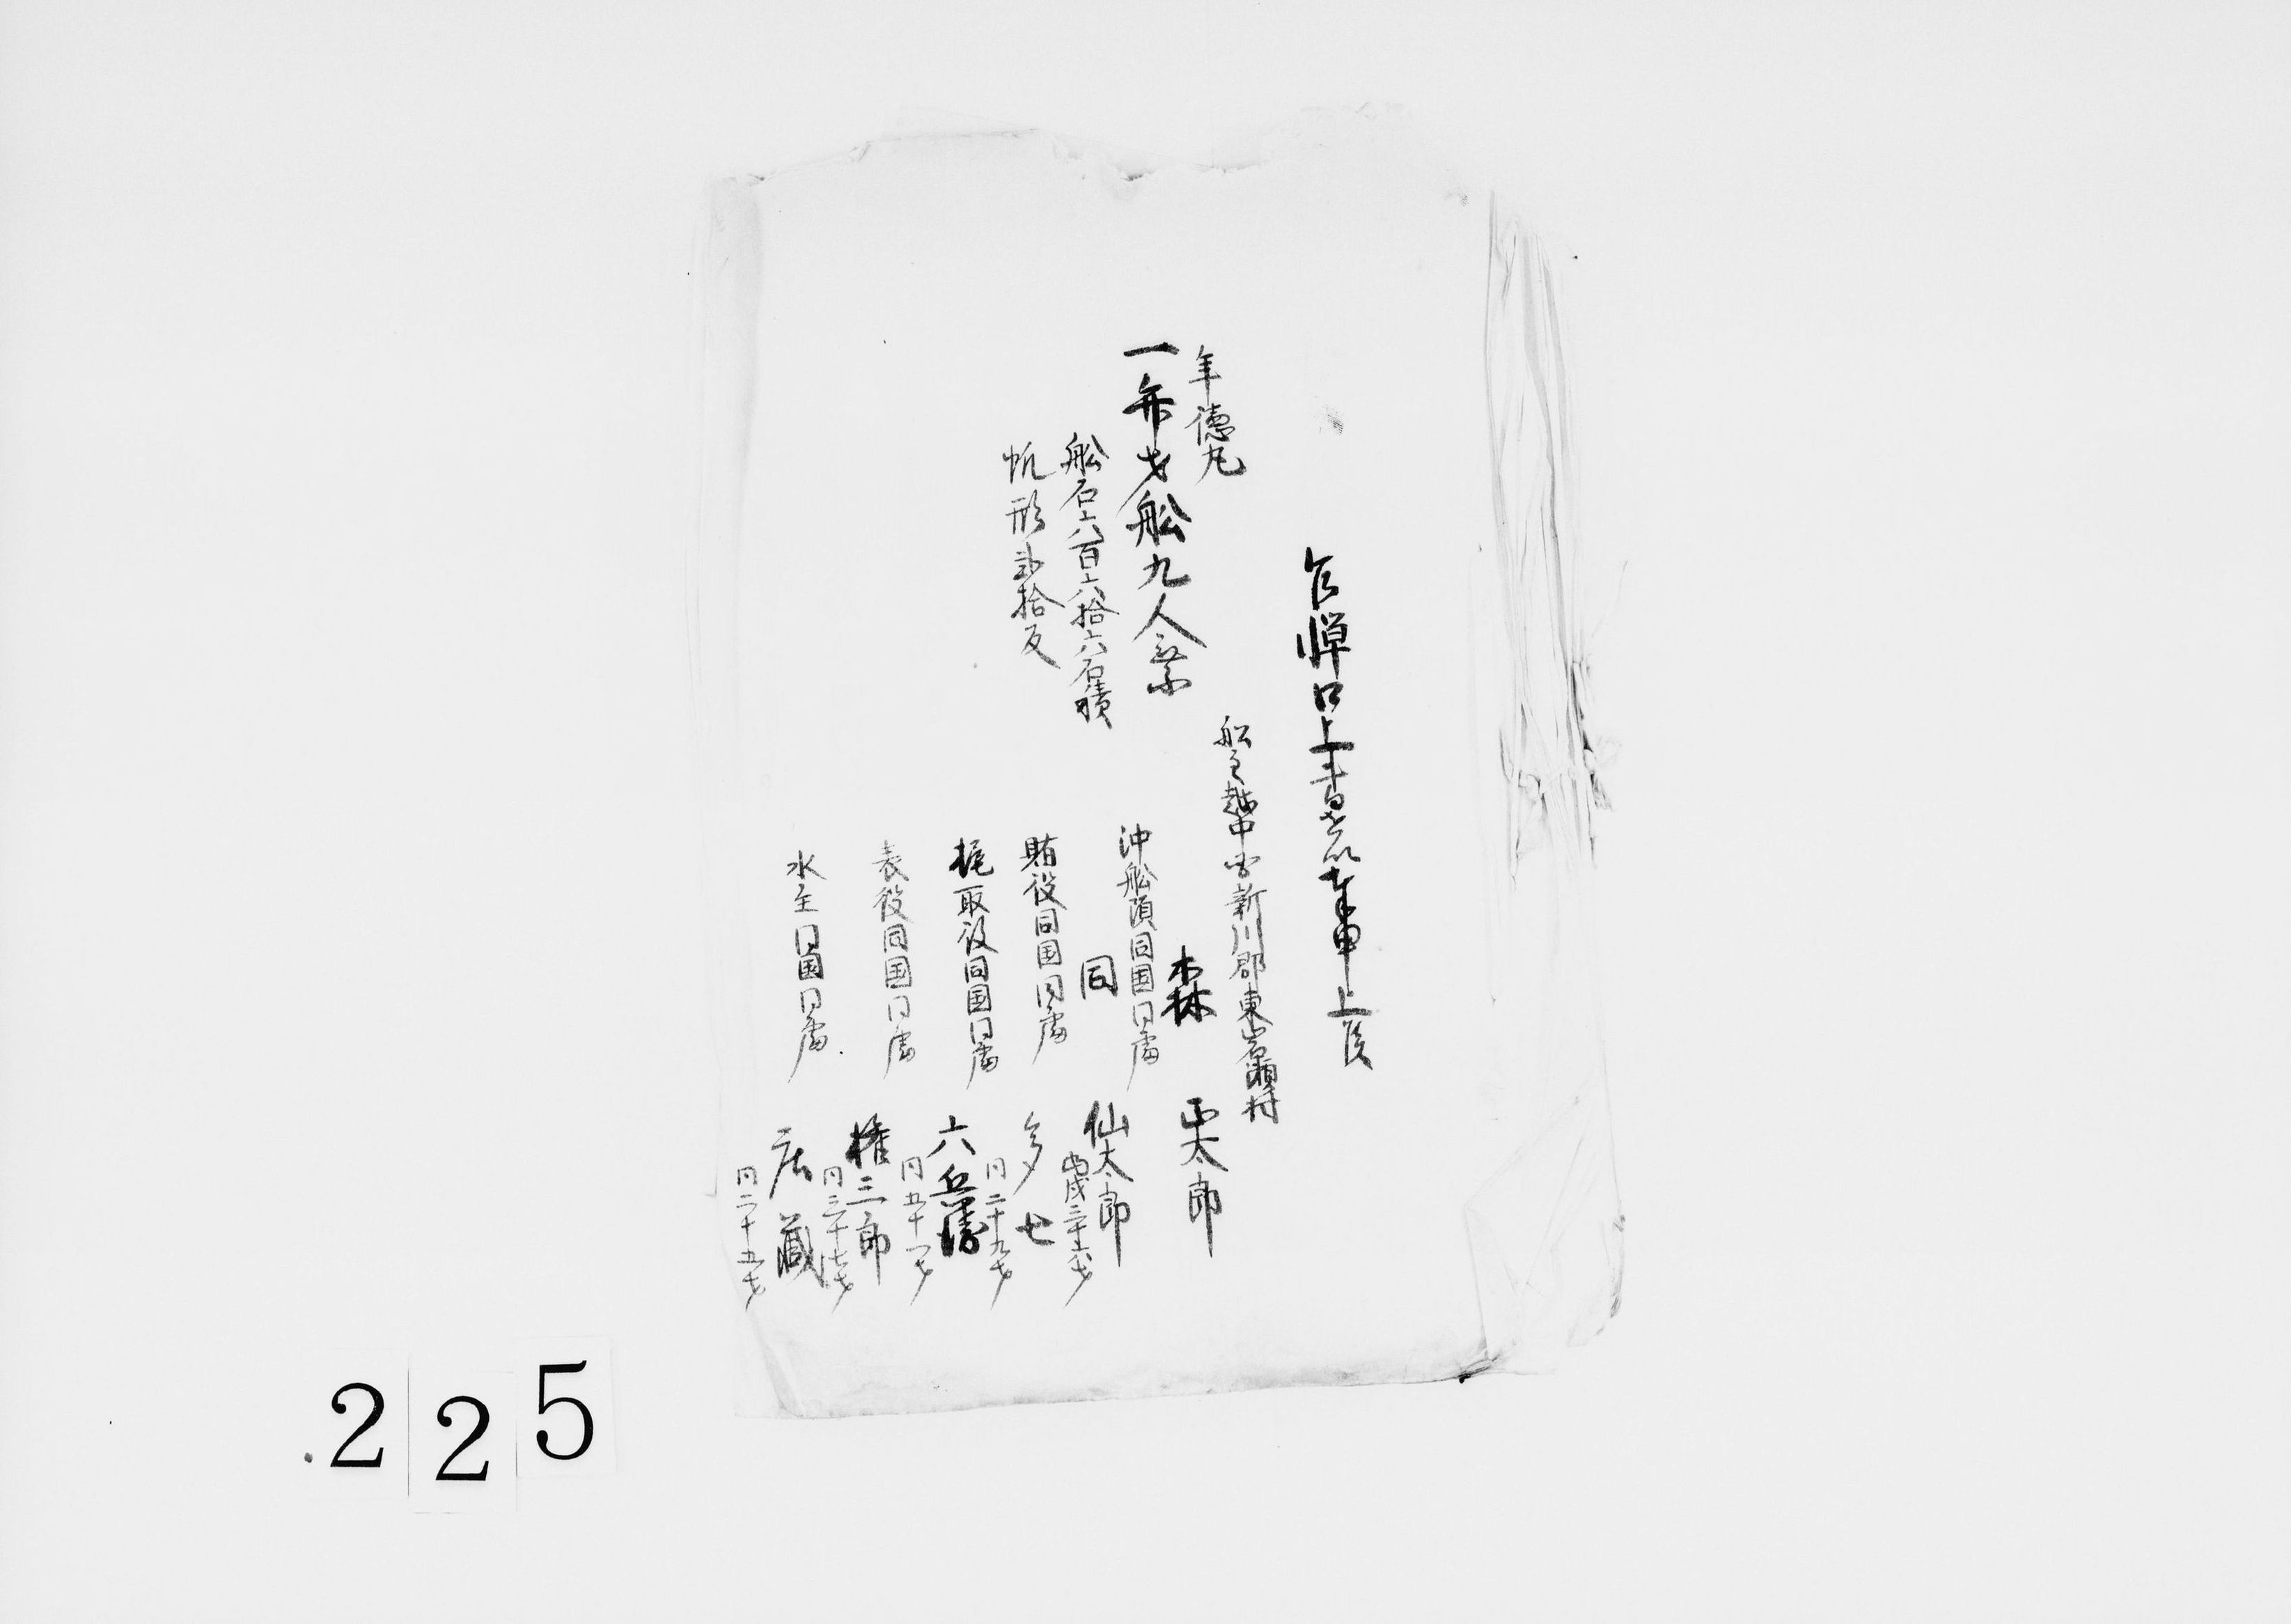 乍憚口上書を以奉申上候
年徳丸
一弁才船九人乗
船石六百六拾六石積
帆形弐拾反
船主越中国新川郡東岩瀬村
森 正太郎
沖船頭同国同處
同 仙太郎
当戌三十六才
賄役同国同處
多七
同二十九才
梶取役同国同處
六兵衛
同五十一才
表役同国同處
権三郎
同三十七才
水主同国同處
居蔵
同二十五才
225